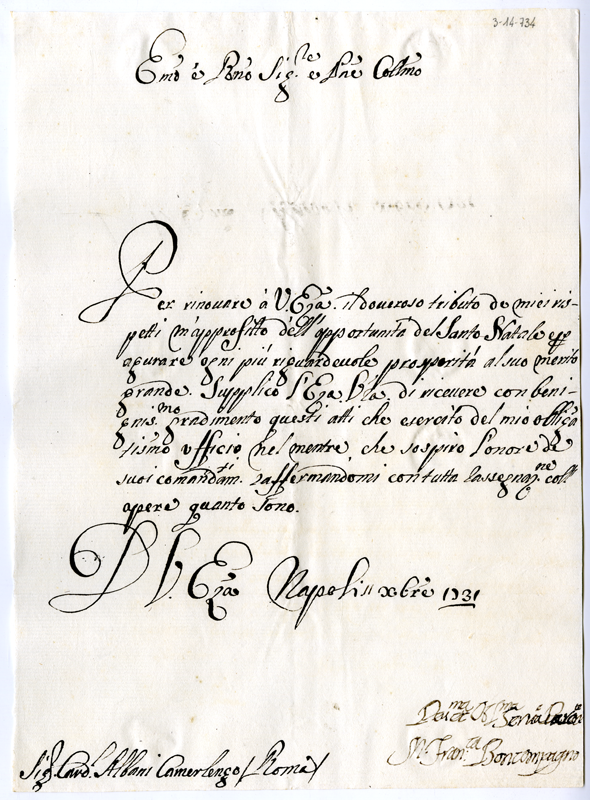 3-14-734
Emo é Rmo Sig.re e Pne Collmo
Per rinouare à V. Eza. il doueroso tributo de miei ris-
petti m'approfitto dell'opportunitá del Santo Natale per
agurare ogni piú riguardeuole prosperitá al suo merito
grande. Supplico l'Eza Vra di riceuere con beni-
gnis.mo gradimento questi atti che esercito del mio obliga
tissimo ufficio nel mentre, che sospiro l'onore de
suoi comandam.ti raffermandomi con tutta l'assegnaz.ne coll'
apere quanto sono.
D V. Eza Napoli 11 xbre 1731
Deu.ma Ob.ma Serua
M.a Fran.ca Boncompagno
Sig.r Card. Albani Camerlengo (Roma)